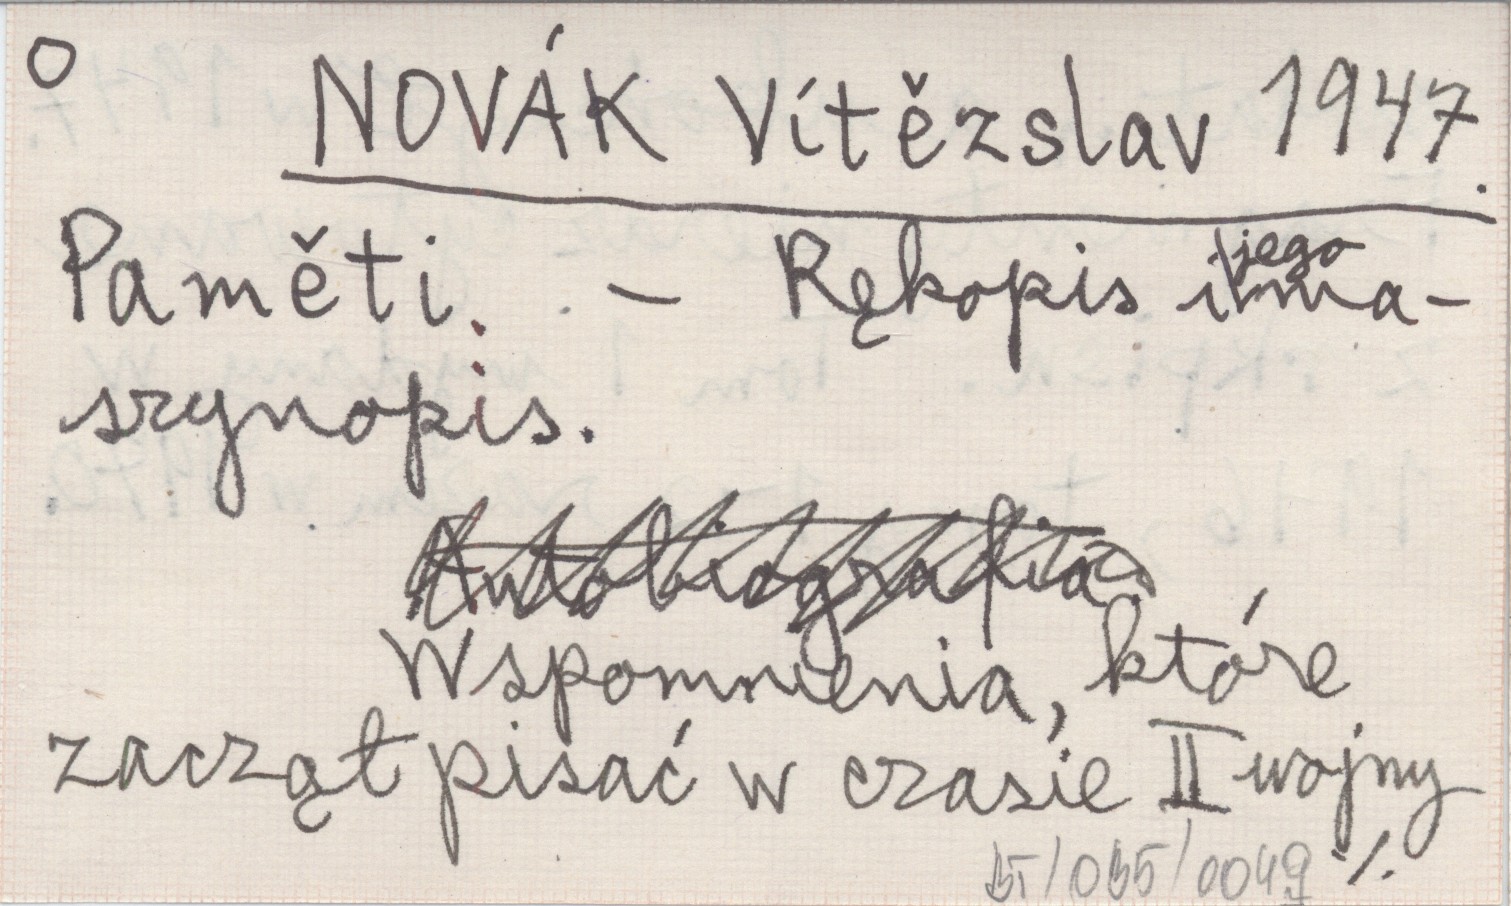 NOVÁK Vítězslav 1947.
Paměti. - Rękopis i jego ma-
szynopis.
Autobiografia
Wspomnienia, które
zaczął pisać w czasie II wojny
/0049 ./.